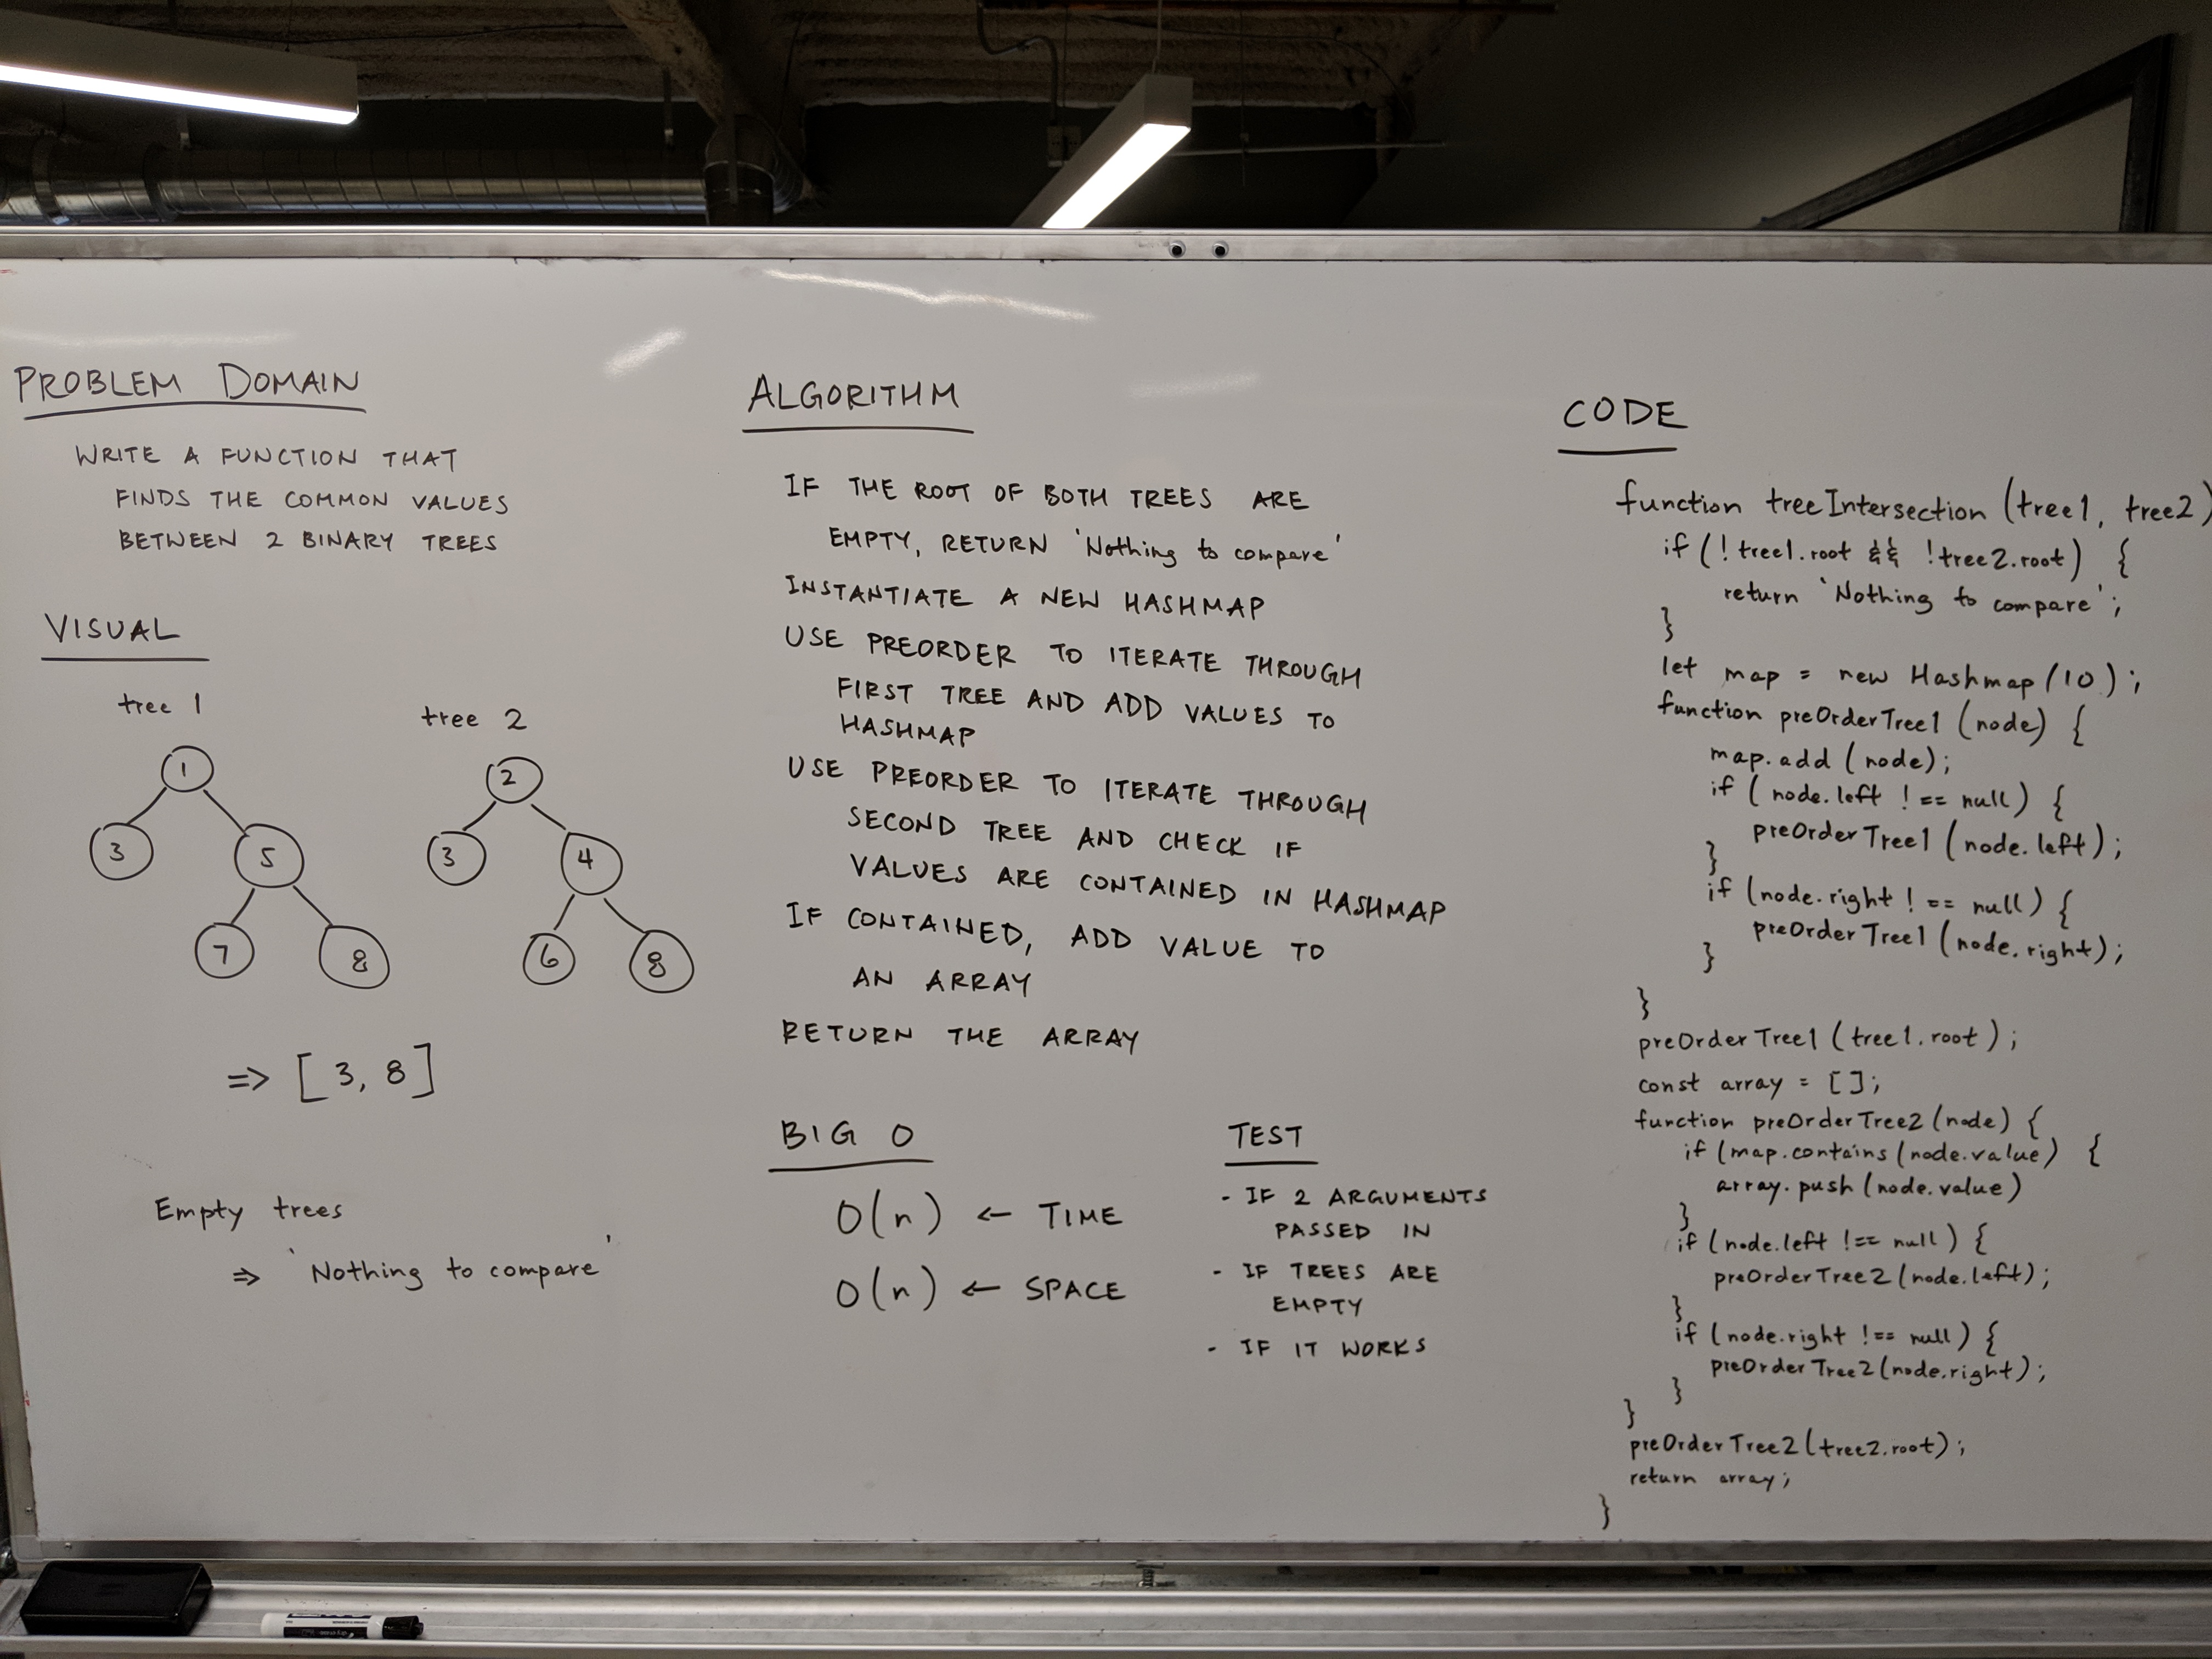 PROBLEM DOMAIN
WRITE A FUNCTION THAT
FINDS THE COMMON VALUES
BETWEEN 2 BINARY TREES
VISUAL
tree 1
tree 2
1
2
3
5
3
4
7
8
6
8
=> [3, 8]
Empty trees
=> 'Nothing to compare'
ALGORITHM
IF THE ROOT OF BOTH TREES ARE
EMPTY, RETURN 'Nothing to compare'
INSTANTIATE A NEW HASHMAP
USE PREORDER TO ITERATE THROUGH
FIRST TREE AND ADD VALUES TO
HASHMAP
USE PREORDER TO ITERATE THROUGH
SECOND TREE AND CHECK IF
VALUES ARE CONTAINED IN HASHMAP
IF CONTAINED, ADD VALUE TO
AN ARRAY
RETURN THE ARRAY
BIG O
O(n) ← TIME
O(n) ← SPACE
TEST
- IF 2 ARGUMENTS
PASSED IN
- IF TREES ARE
EMPTY
- IF IT WORKS
CODE
function treeIntersection (tree1, tree2)
if (!tree1.root && !tree2.root) {
return 'Nothing to compare';
}
let map = new Hashmap(10);
function preOrderTree1 (node) {
map.add (node);
if (node.left !== null) {
preOrderTree1 (node.left);
}
if (node.right !== null) {
preOrderTree1 (node.right);
}
}
preOrderTree1 (tree1.root);
const array = [];
function preOrderTree2 (node) {
if (map.contains (node.value) {
array.push (node.value)
}
if (node.left !== null) {
preOrderTree2 (node.left);
}
if (node.right !== null) {
preOrderTree2 (node.right);
}
}
preOrderTree2 (tree2.root);
return array;
}